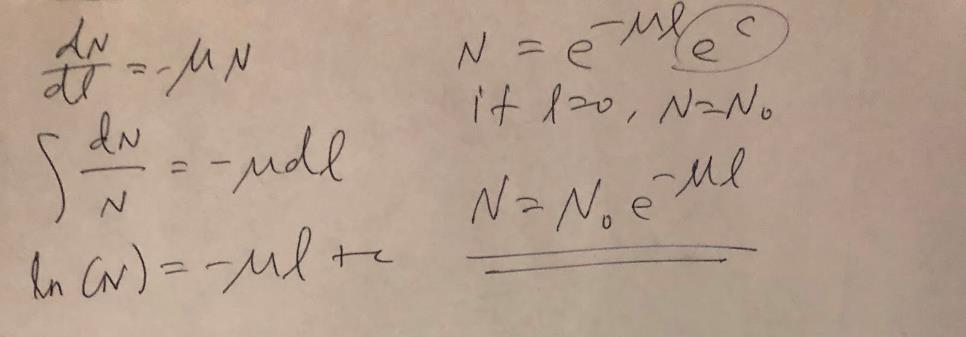 dN/dl = -μN
∫ dN/N = -μdl
ln(N) = -μl + c
N = e^-μl e^c
if l=0, N=N₀
N = N₀ e^-μl